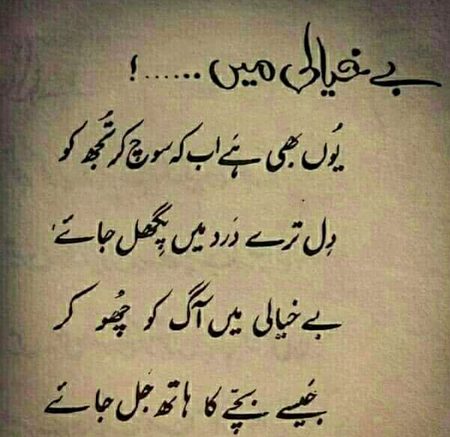 بے خیالی میں ......!
یُوں بھی ہَے اب کہ سوچ کر تُجھ کو
دِل ترے دَرد میں پِگھل جائے
بے خیالی میں آگ کو چُھو کر
جَیسے بچّے کا ہاتھ جَل جائے